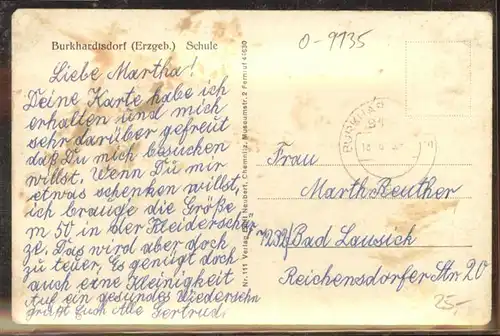 Burkhardtsdorf (Erzgeb.) Schule
Liebe Martha!
Deine Karte habe ich
erhalten und mich
sehr darüber gefreut
daß Du mich besuchen
willst. Wenn Du mir
etwas schenken willst,
ich brauge die Größe
m 50 in der Kleiderschür
ze. Das wird aber doch
zu teuer. Es genügt doch
auch eine Kleinigkeit
Auf ein gesundes Wiedersehn
grüßt Euch Alle Gertrud.
Nr. 111 Verlag Neubert, Chemnitz, Museumstr. 2 Fernruf 41630
0-9135
BURKHAR
Frau
Marth Reuther
7232/Bad Lausick
Reichensdorfer Str. 20
25,-